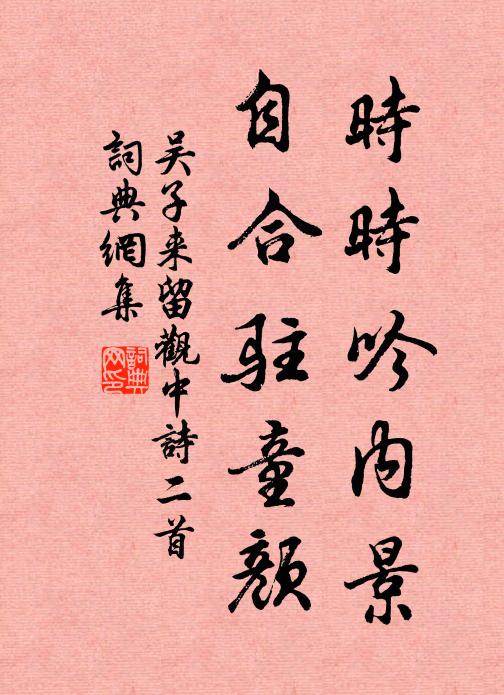 時時吟内景
自合駐童顏
吴子来留觀中詩二首
詞典網集
詞典網印